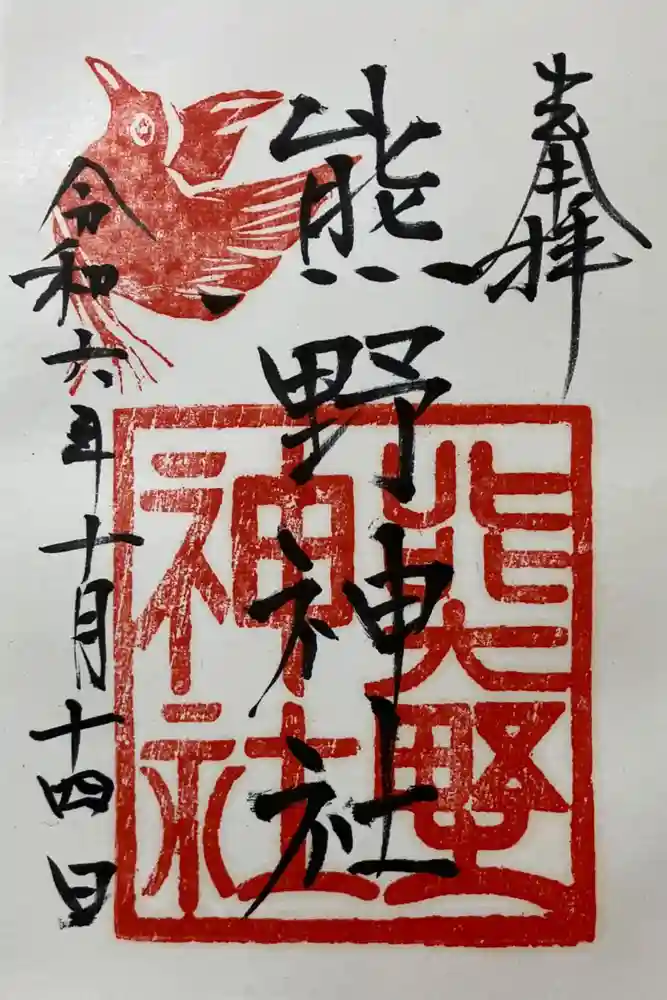 奉拝
熊野神社
令和六年十月十四日
熊野
神社